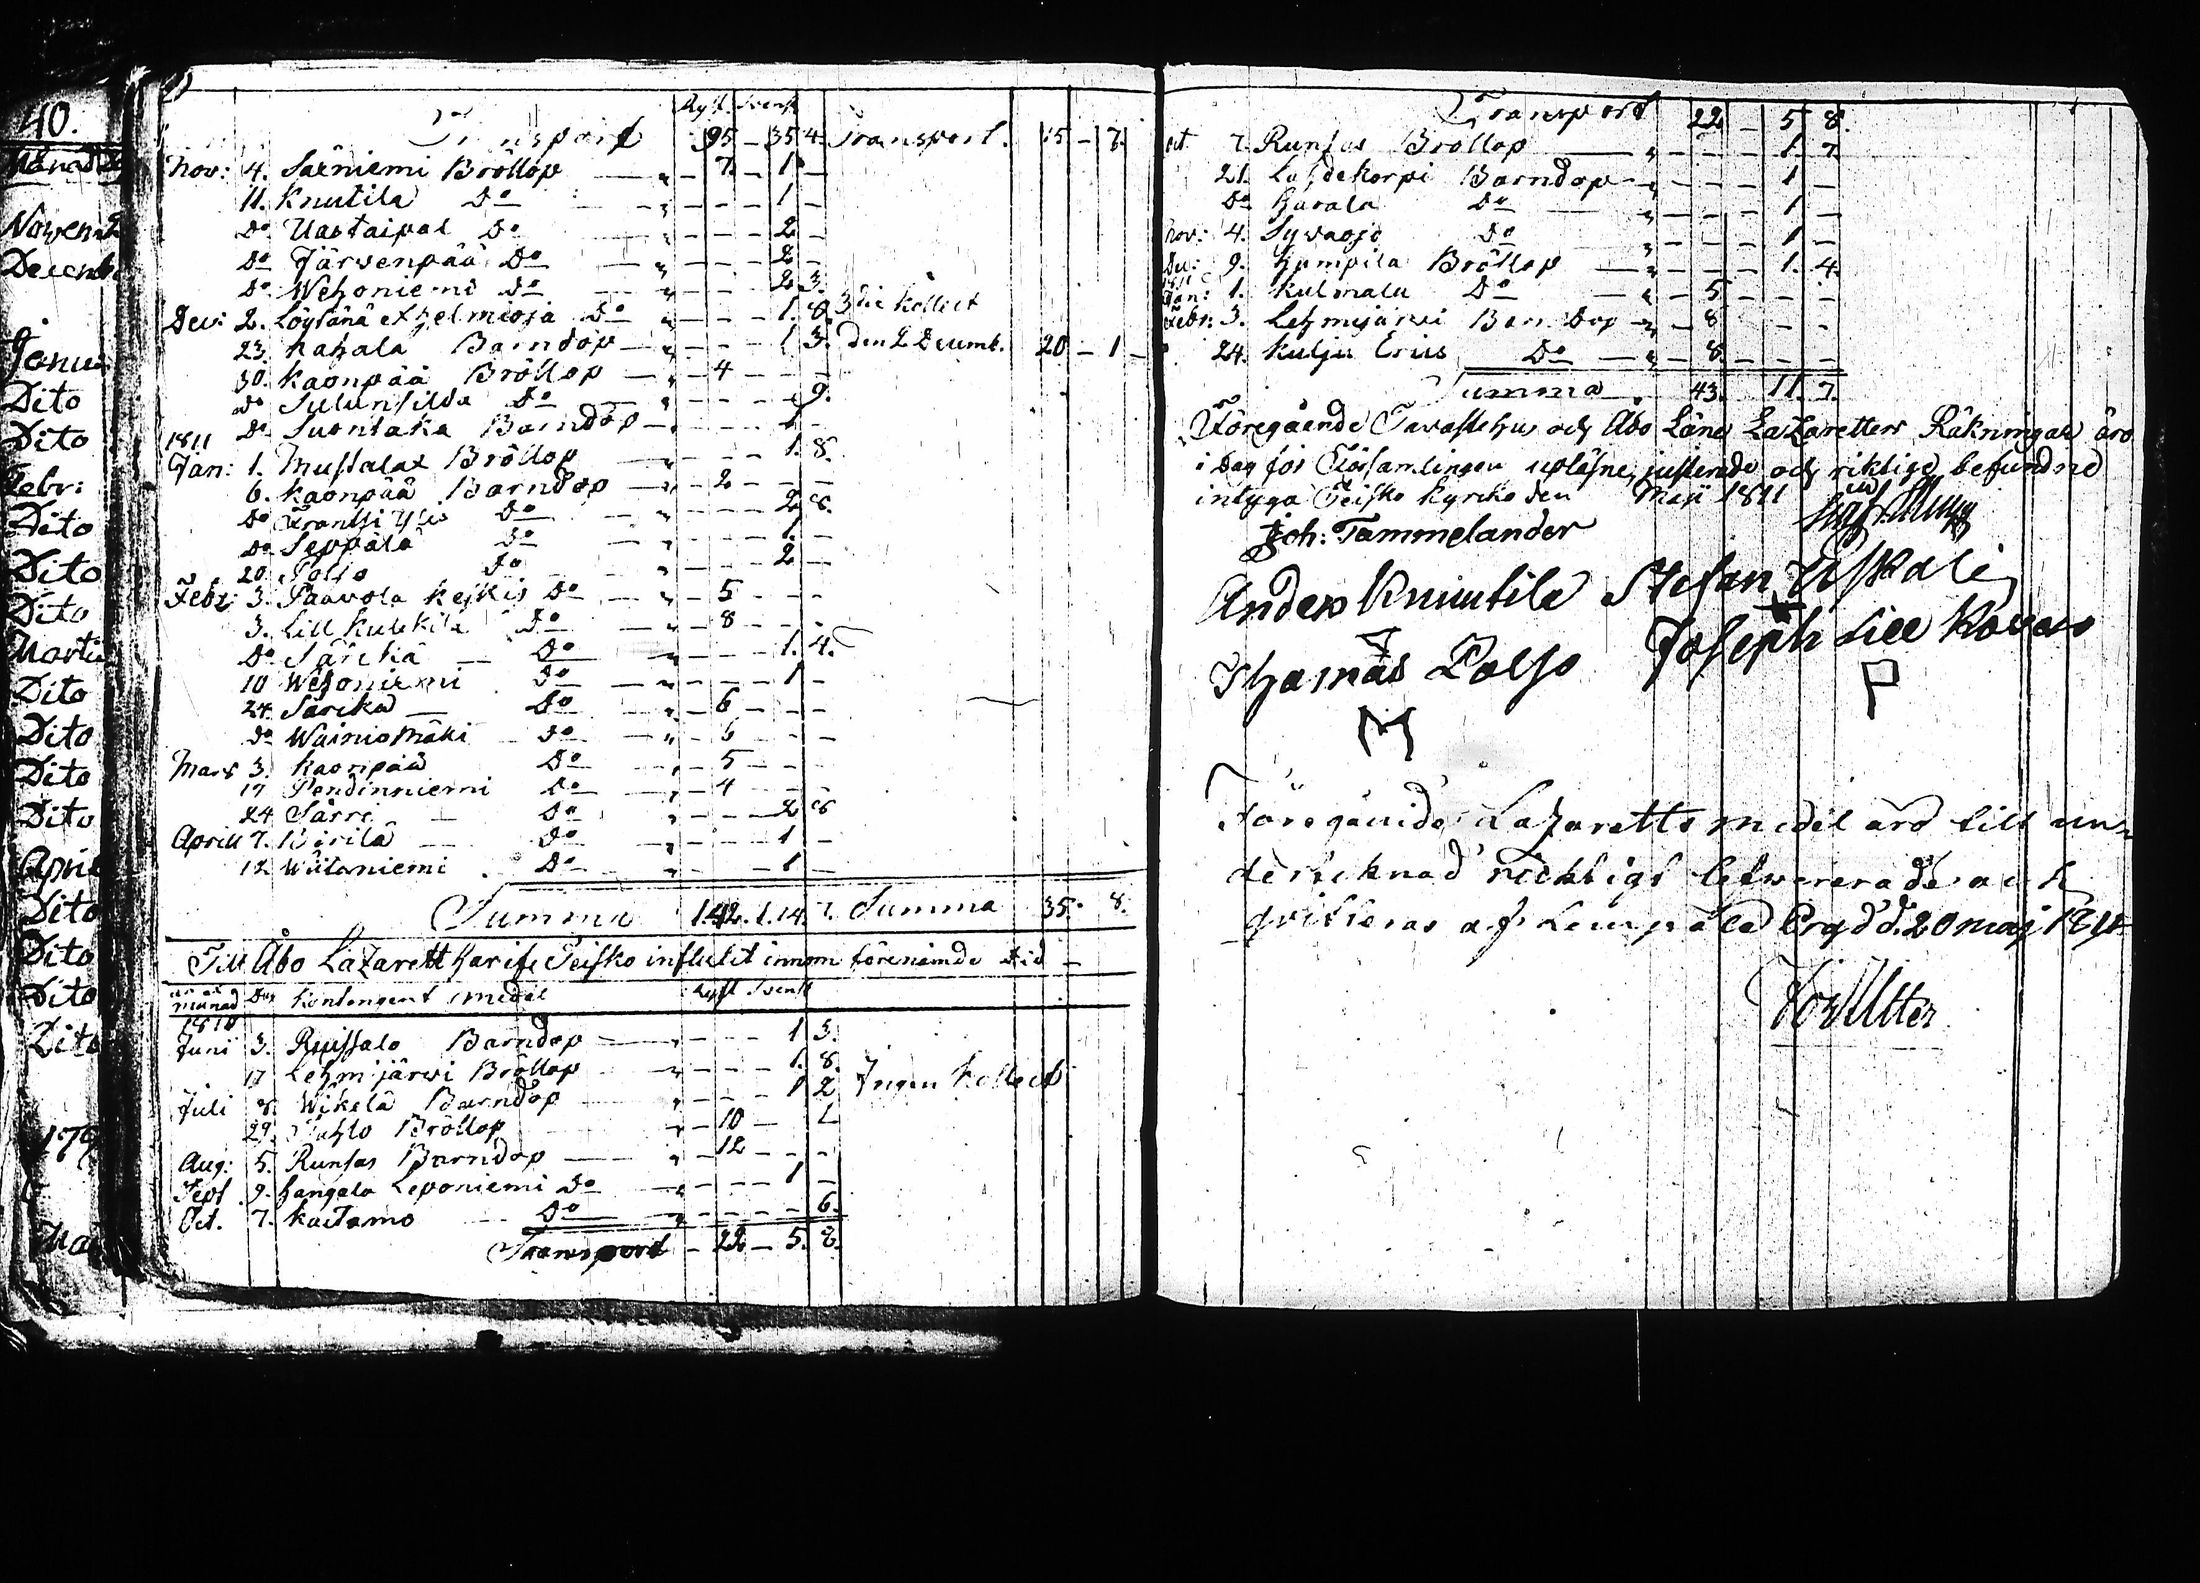 40.
Månad
Novemb
Decemb
Janua
Dito
Dito
Febr:
Dito
Dito
Dito
Martii
Dito
Dito
Dito
Dito
April
Dito
Dito
Dito
Dito
179
Ryst. Svenst
Transport 95 - 35 4. Transport. 15 - 7.
Nov: 4. Säeniemi Bröllop - 7. - 1 -
11. Knutila Do - 1 -
Do Uastaipal Do - 2 -
Do Järvenpää Do - 2 -
Do Wehoniemi Do - 2 3.
Dec: 2. Löytänä et Helmioja Do - 1. 8. 3die Kollect
23. Kahala Barndop - 1 3. den 2 Decemb. 20 - 1 -
30. Kaonpää Bröllop - 4 - - -
Do Do - 9.
Do Suontaka Barndop - 1 -
1811
Jan: 1. Mustalax Bröllop - 1. 8.
6. Kaonpää Barndop - 2 - - -
Do Frantsi Do - 2 8.
Do Seppälä Do - 1. -
20. Polso Do - 2 -
Febr: 3. Paavola Keskis Do - 5 - - -
3. Lill Kulkkila Do - 8 - - -
Do Särckä Do - 1. 4.
10 Wehoniemi Do - 1 -
24. Särckä Do - 6 - - -
Do Wainio Mäki Do - 6 - - -
Mars 3. Kaonpää Do - 5 - - -
17 Pendinniemi Do - 4 - - -
24 Särri Do - 2 8
April 7. Kirilä Do - 1 -
12 Wätäniemi Do - 1 -
Summa 142. 1. 14. 7. Summa 35. 8.
Till Åbo Lazarett har ifr. Teisko influtit innom förenämde tid -
månad Dag Kontengent medel Ryst Svenst
1810
Juni 3. Ruissalo Barndop - 1 3.
17 Lehmjärvi Bröllop - 1. 8.
Juli 8. Wikelä Barndop - 1 2 Ingen Kollect
29. Pahlo Bröllop - 10 - 2
Aug: 5. Runsas Barndop - 12 - - -
Sept. 9. Hangala Leponiemi Do - 1 -
Oct. 7. Kaitamo Do - 6.
Transport - 22 - 5. 8.
Transport 22 - 5 8.
oct. 7. Runsas Bröllop - 1. 7.
21. Lahdekorpi Barndop - 1 -
Do Harala Do - 1 -
Nov: 4. Syvaojo Do - 1 -
Dec: 9. Humpila Bröllop - 1. 4.
1811
Jan: 1. Kulmala Do - 5 - - -
Febr: 3. Lehmijärvi Barndop - 8 - - -
24. Kulju Erius Do - 8. - - -
Summa. 43. 11. 7.
Föregående Tavastehus och Åbo Läns Lazaretters Räkningar äro
i Dag för Församlingen upläsne, justerade och riktige befundne
intyga Teisko Kyrko den Maji 1811
Joh: Tammelander
Anders Knuutila Stefan Uskali
Thomas Polso Joseph Lill Kovas
M P
Föregåinde Lazaretts medel äro till un-
derteknad ricktigt lefwererade och
qvitteras af Lempälä Prgd d. 20 maj 1811